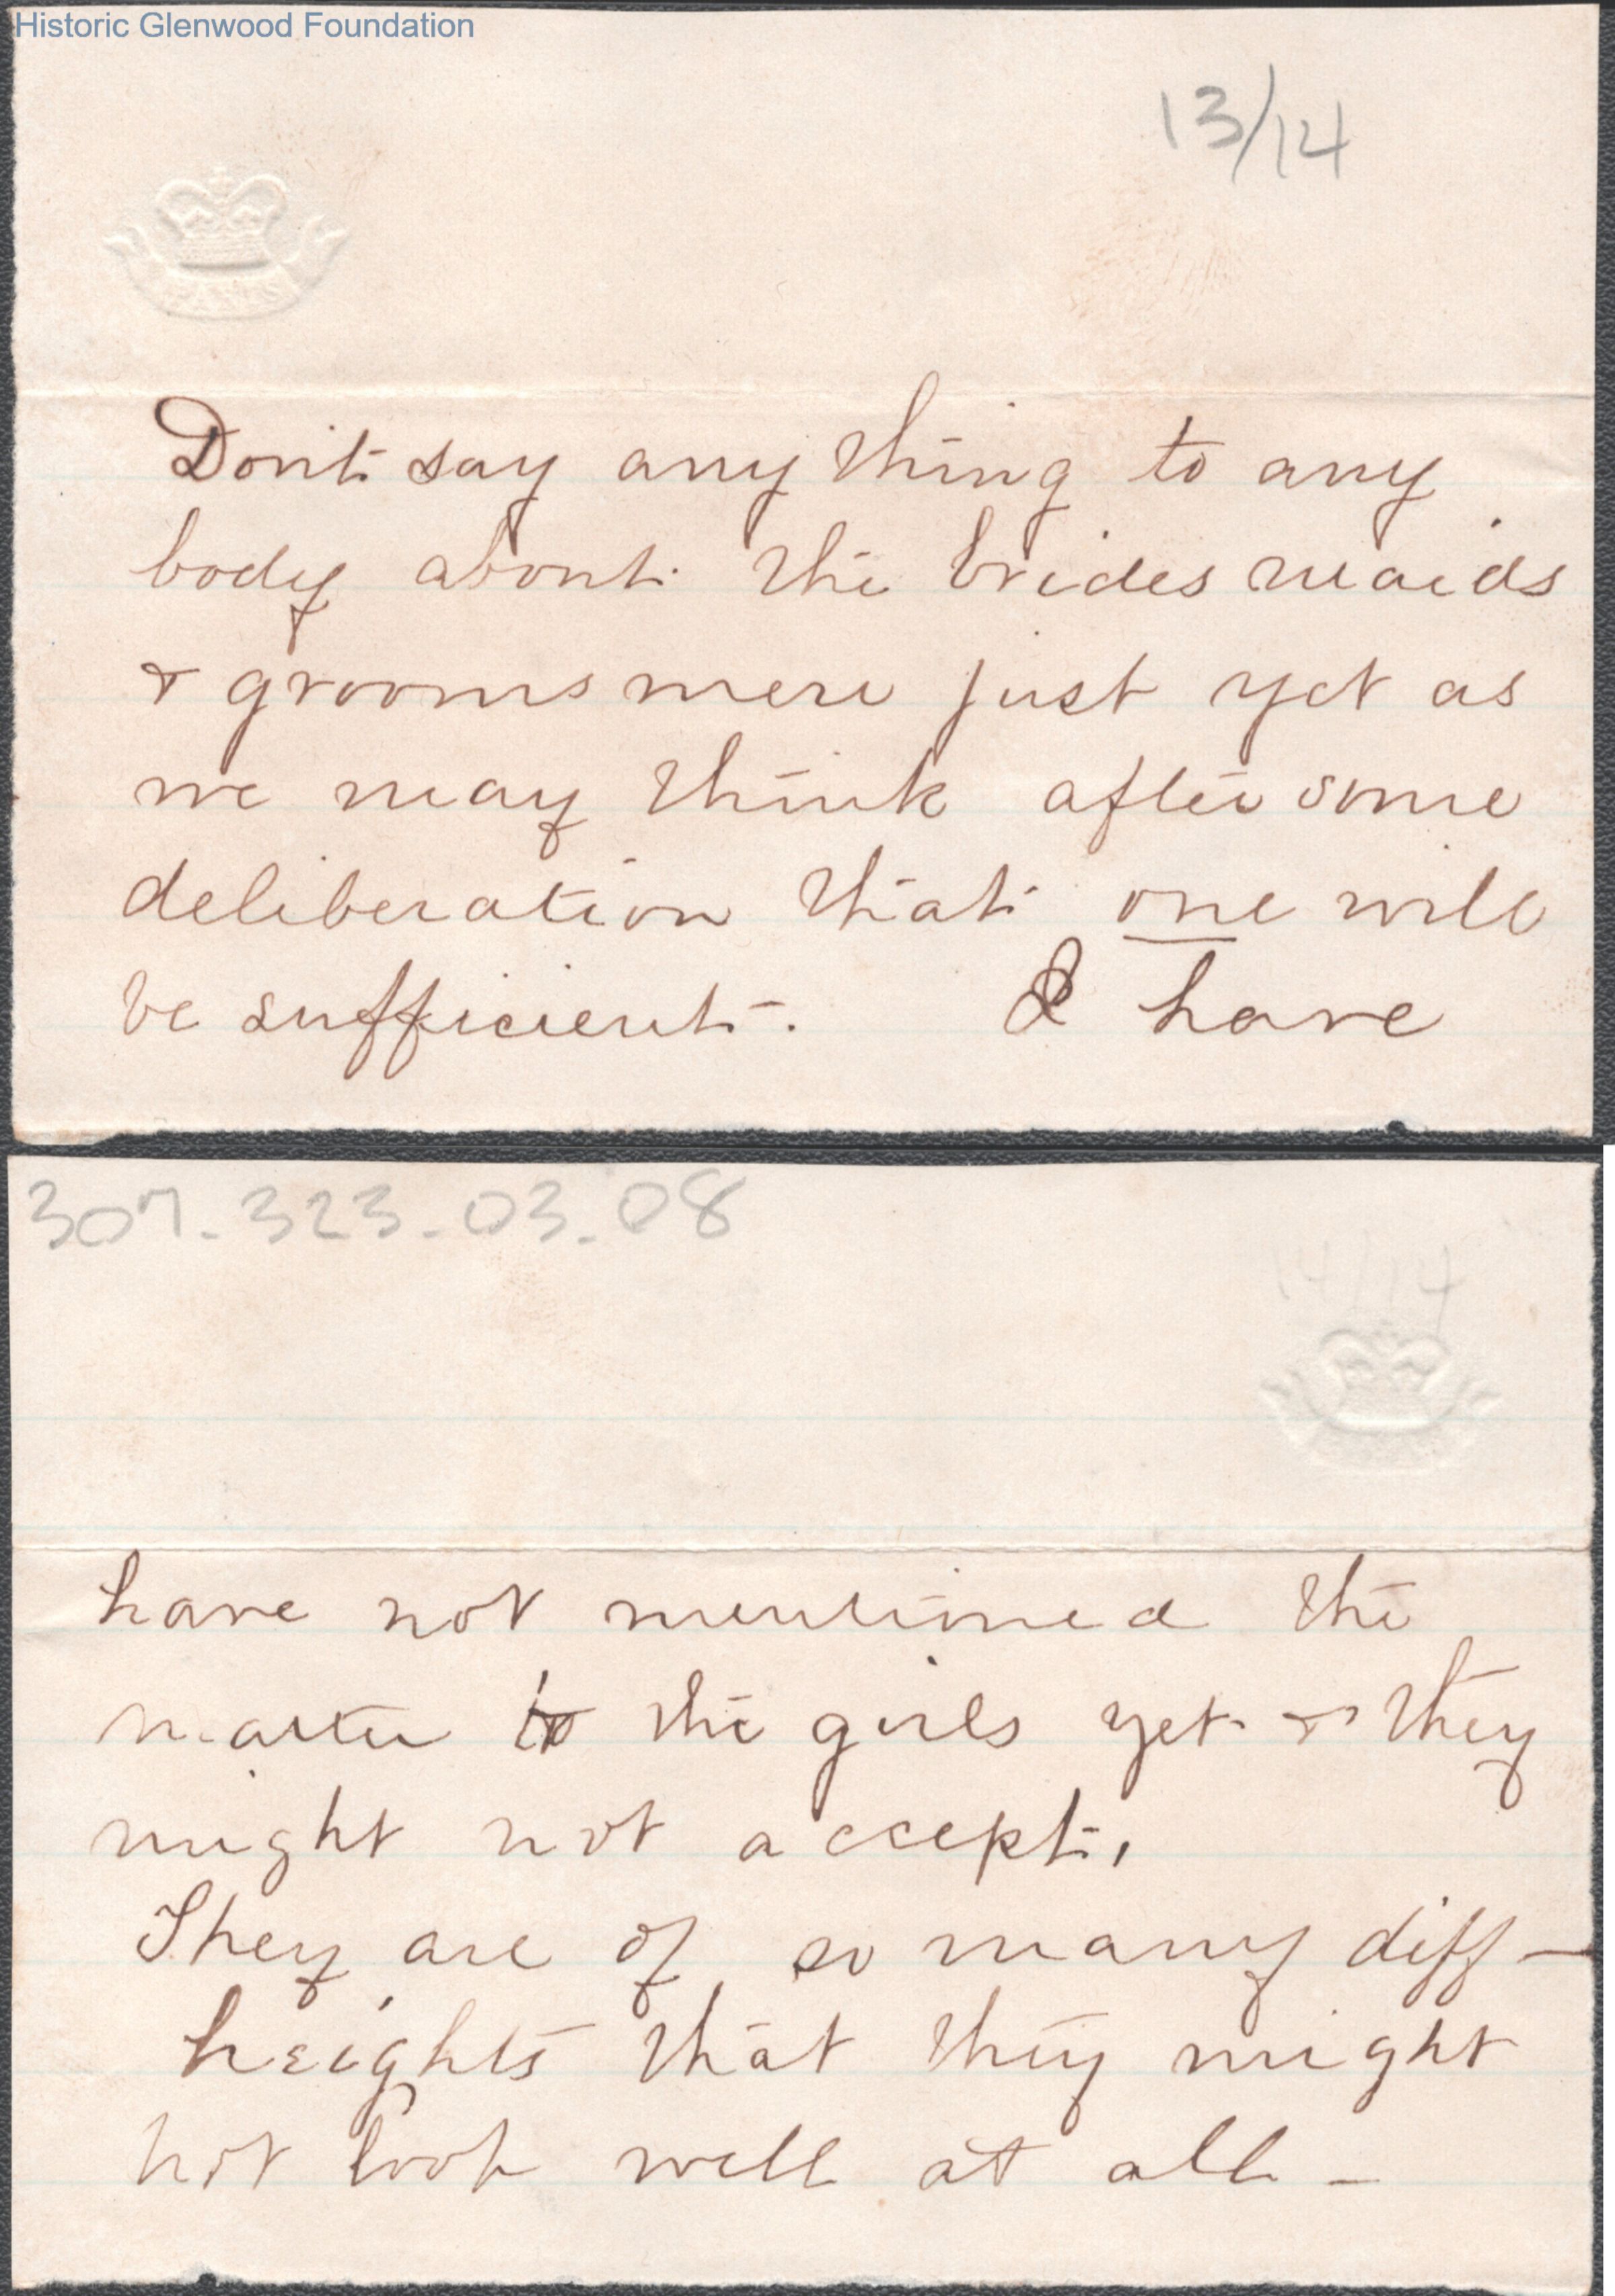 Historic Glenwood Foundation
13/14
PARIS
Don't say any thing to any
body about the brides maids
& grooms mere just yet as
we may think after some
deliberation that one will
be sufficient. I have
307-323-03-08
14/14
have not mentioned the
matter to the girls yet & they
might not accept.
They are of so many diff-
heights that they might
not look well at all -